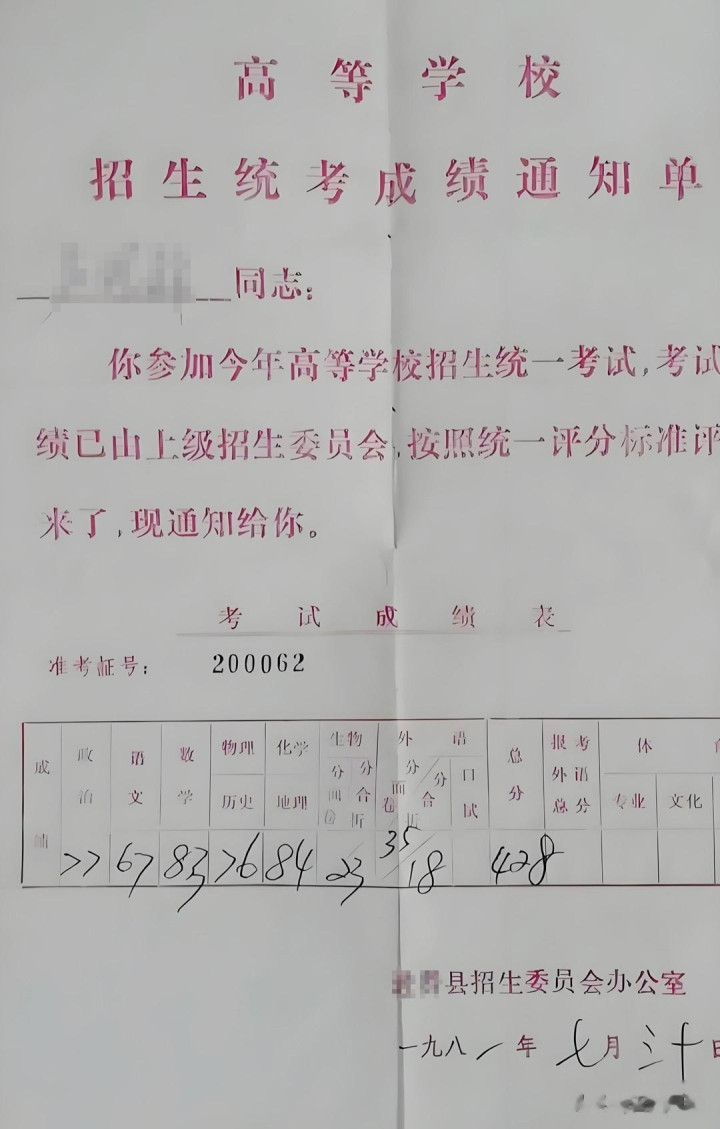 高等学校
招生统考成绩通知单
同志：
你参加今年高等学校招生统一考试，考试
绩已由上级招生委员会，按照统一评分标准评
来了，现通知给你。
考试成绩表
准考证号： 200062
成绩 政治 语文 数学 物理 历史 化学 地理 生物 分面卷 分合折 外语 分面卷 分合折 口试 总分 报考外语总分 体 专业 文化
77 67 83 76 84 23 35/18 428
县招生委员会办公室
一九八一年七月三十日